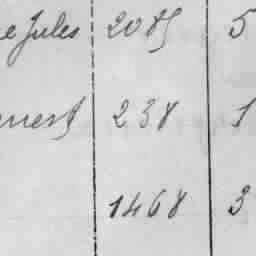 e Jules 2085 5
nest 238 1
1468 3